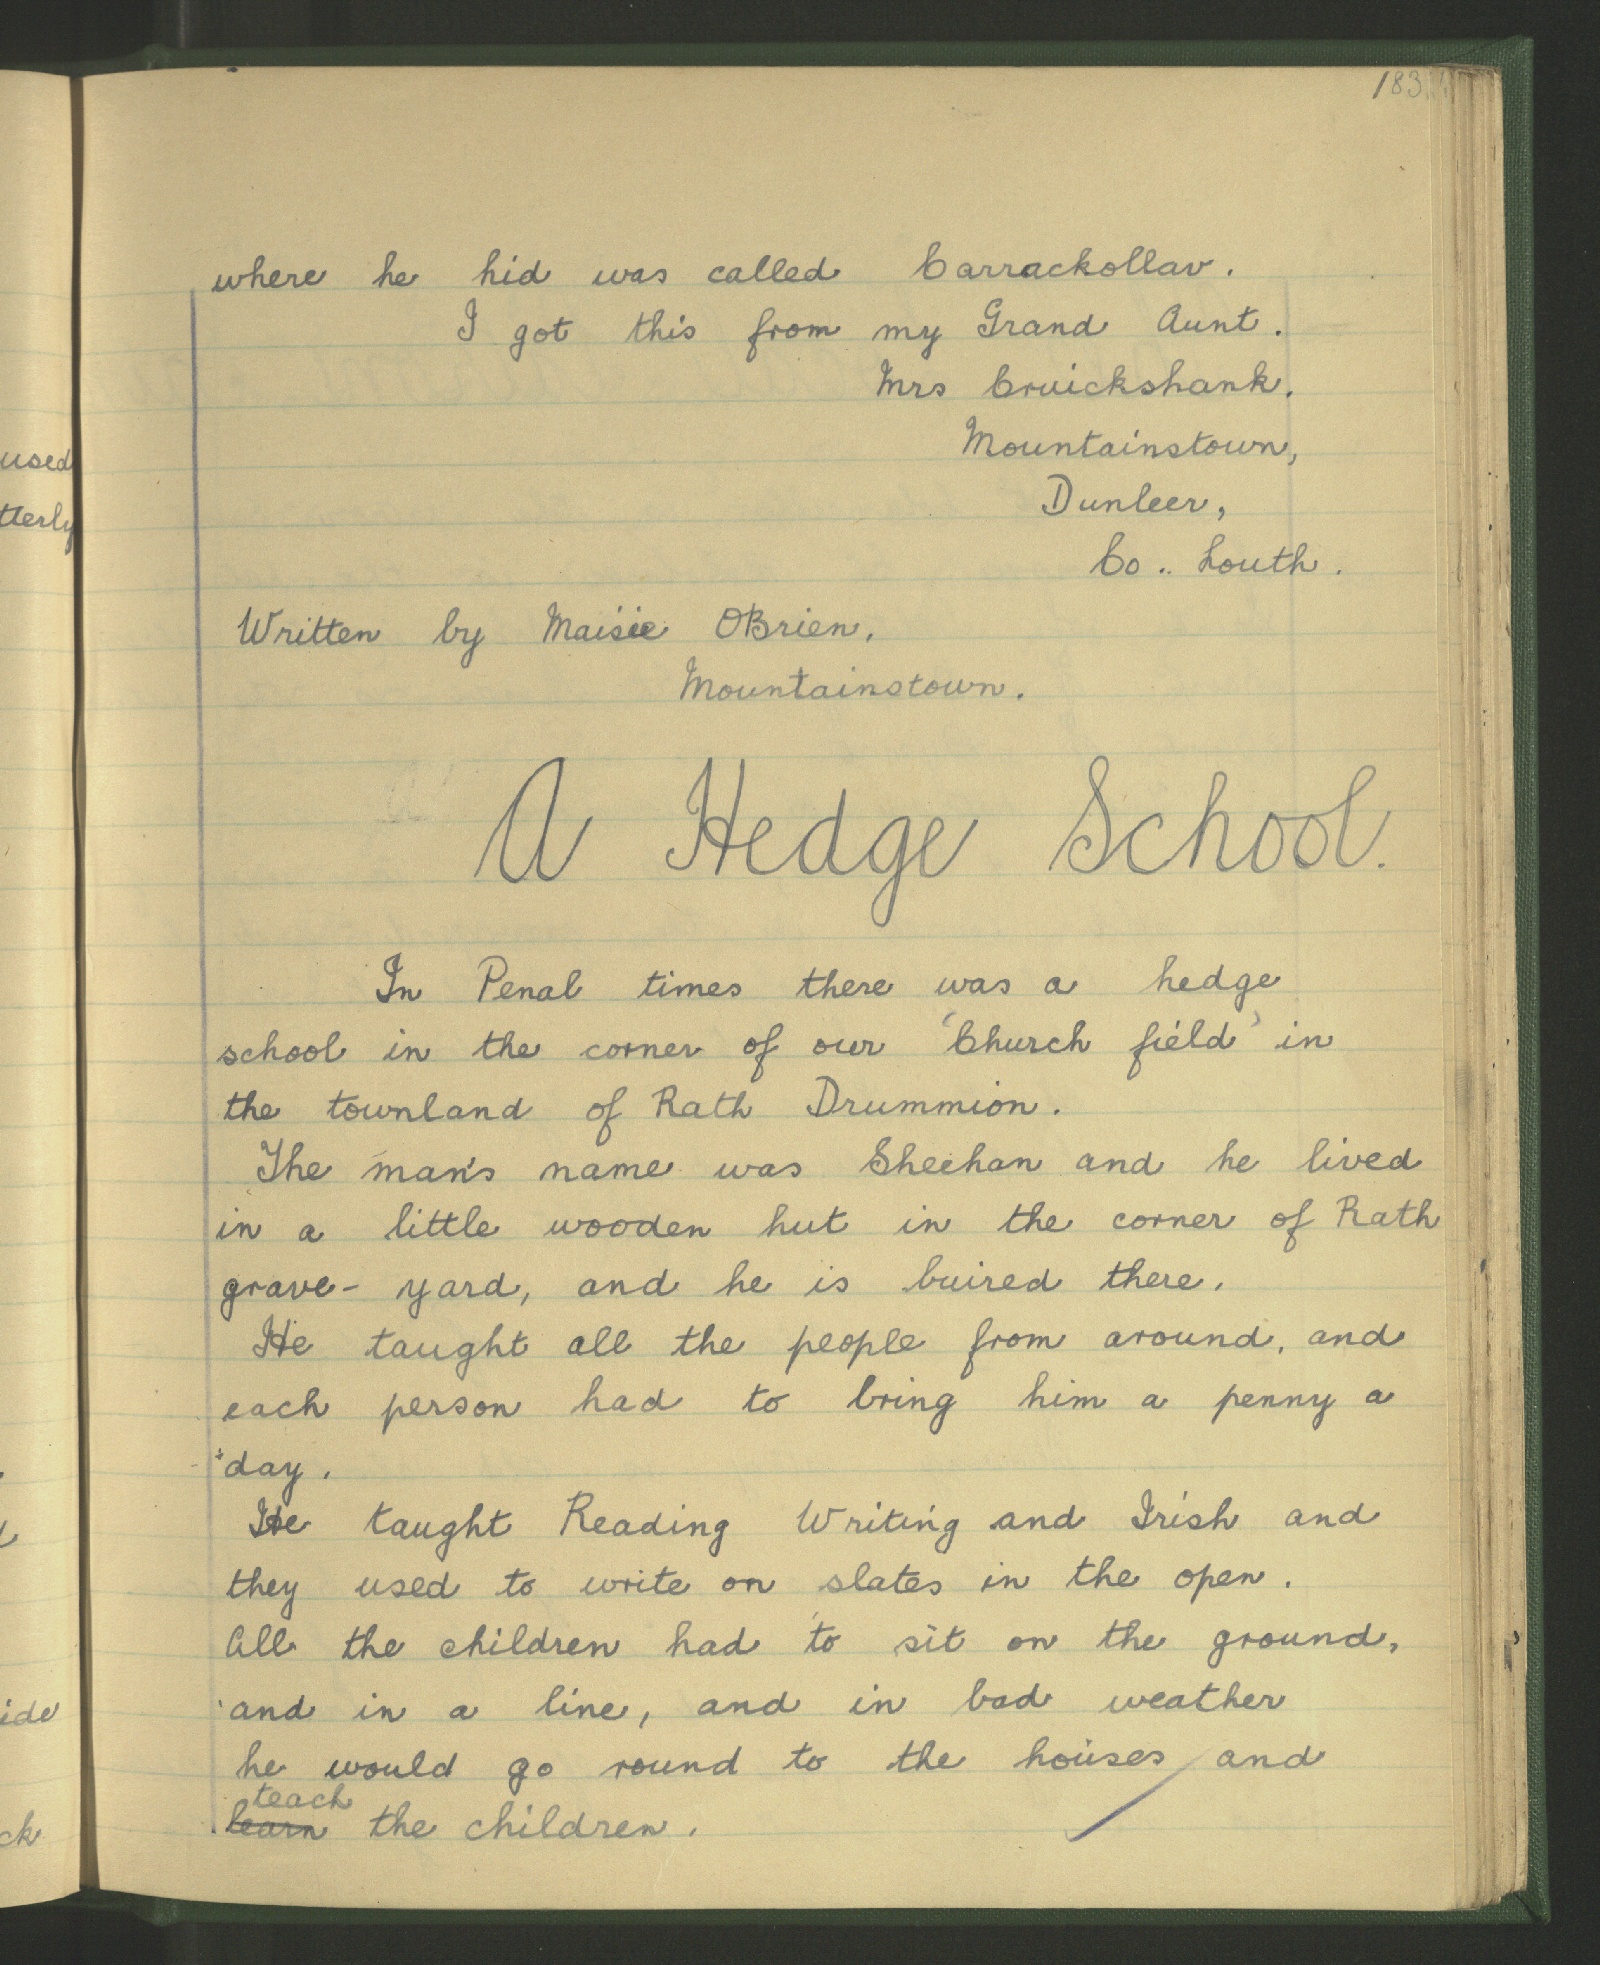 183
where he hid was called Carrackollav.
I got this from my Grand Aunt.
Mrs Cruickshank.
Mountainstown,
Dunleer,
Co.. Louth.
Written by Maisie OBrien.
Mountainstown.
A Hedge School.
In Penal times there was a hedge
school in the corner of our 'Church field' in
the townland of Rath Drummion.
The man's name was Sheehan and he lived
in a little wooden hut in the corner of Rath
grave-yard, and he is buired there.
He taught all the people from around, and
each person had to bring him a penny a
day.
He taught Reading Writing and Irish and
they used to write on slates in the open.
All the children had to sit on the ground,
and in a line, and in bad weather
he would go round to the houses and
teach
learn the children.
used
tterly
ide
ck